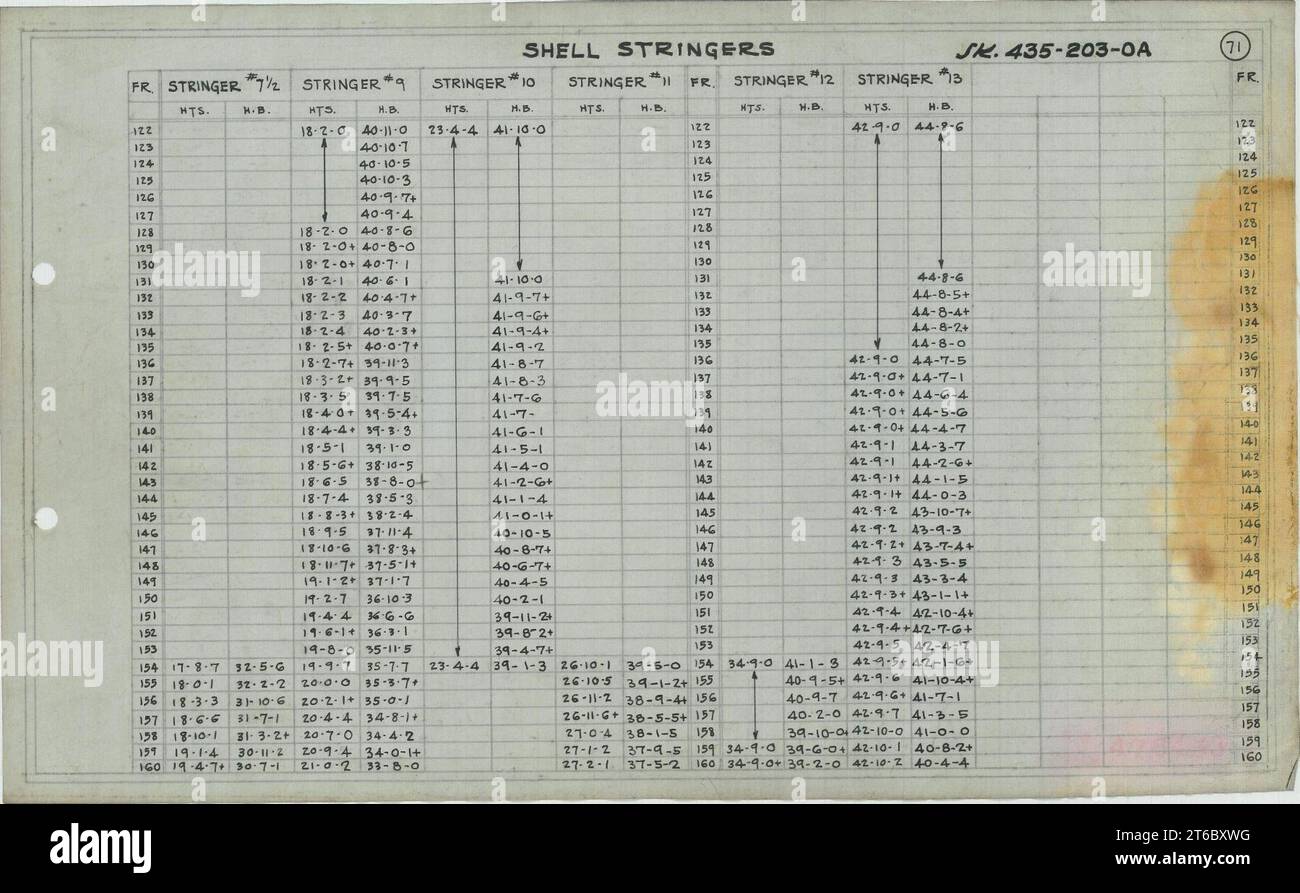 SHELL STRINGERS SK. 435-203-0A 71
FR. STRINGER #7½ STRINGER #9 STRINGER #10 STRINGER #11 FR. STRINGER #12 STRINGER #13 FR.
HTS. H.B. HTS. H.B. HTS. H.B. HTS. H.B. HTS. H.B. HTS. H.B.
122 18-2-0 40-11-0 23-4-4 41-10-0 122 42-9-0 44-8-6 122
123 40-10-7 123 123
124 40-10-5 124 124
125 40-10-3 125 125
126 40-9-7+ 126 126
127 40-9-4 127 127
128 18-2-0 40-8-6 128 128
129 18-2-0+ 40-8-0 129 129
130 18-2-0+ 40-7-1 130 130
131 18-2-1 40-6-1 41-10-0 131 44-8-6 131
132 18-2-2 40-4-7+ 41-9-7+ 132 44-8-5+ 132
133 18-2-3 40-3-7 41-9-6+ 133 44-8-4+ 133
134 18-2-4 40-2-3+ 41-9-4+ 134 44-8-2+ 134
135 18-2-5+ 40-0-7+ 41-9-2 135 44-8-0 135
136 18-2-7+ 39-11-3 41-8-7 136 42-9-0 44-7-5 136
137 18-3-2+ 39-9-5 41-8-3 137 42-9-0+ 44-7-1 137
138 18-3-5 39-7-5 41-7-6 138 42-9-0+ 44-6-4 138
139 18-4-0+ 39-5-4+ 41-7- 139 42-9-0+ 44-5-6 139
140 18-4-4+ 39-3-3 41-6-1 140 42-9-0+ 44-4-7 140
141 18-5-1 39-1-0 41-5-1 141 42-9-1 44-3-7 141
142 18-5-6+ 38-10-5 41-4-0 142 42-9-1 44-2-6+ 142
143 18-6-5 38-8-0+ 41-2-6+ 143 42-9-1+ 44-1-5 143
144 18-7-4 38-5-3 41-1-4 144 42-9-1+ 44-0-3 144
145 18-8-3+ 38-2-4 41-0-1+ 145 42-9-2 43-10-7+ 145
146 18-9-5 37-11-4 40-10-5 146 42-9-2 43-9-3 146
147 18-10-6 37-8-3+ 40-8-7+ 147 42-9-2+ 43-7-4+ 147
148 18-11-7+ 37-5-1+ 40-6-7+ 148 42-9-3 43-5-5 148
149 19-1-2+ 37-1-7 40-4-5 149 42-9-3 43-3-4 149
150 19-2-7 36-10-3 40-2-1 150 42-9-3+ 43-1-1+ 150
151 19-4-4 36-6-6 39-11-2+ 151 42-9-4 42-10-4+ 151
152 19-6-1+ 36-3-1 39-8-2+ 152 42-9-4+ 42-7-6+ 152
153 19-8-0 35-11-5 39-4-7+ 153 42-9-5 42-4-7 153
154 17-8-7 32-5-6 19-9-7 35-7-7 23-4-4 39-1-3 26-10-1 39-5-0 154 34-9-0 41-1-3 42-9-5+ 42-1-6+ 154
155 18-0-1 32-2-2 20-0-0 35-3-7+ 26-10-5 39-1-2+ 155 40-9-5+ 42-9-6 41-10-4+ 155
156 18-3-3 31-10-6 20-2-1+ 35-0-1 26-11-2 38-9-4+ 156 40-9-7 42-9-6+ 41-7-1 156
157 18-6-6 31-7-1 20-4-4 34-8-1+ 26-11-6+ 38-5-5+ 157 40-2-0 42-9-7 41-3-5 157
158 18-10-1 31-3-2+ 20-7-0 34-4-2 27-0-4 38-1-5 158 39-10-0+ 42-10-0 41-0-0 158
159 19-1-4 30-11-2 20-9-4 34-0-1+ 27-1-2 37-9-5 159 34-9-0 39-6-0+ 42-10-1 40-8-2+ 159
160 19-4-7+ 30-7-1 21-0-2 33-8-0 27-2-1 37-5-2 160 34-9-0+ 39-2-0 42-10-2 40-4-4 160
alamy
alamy
alamy
Image ID: 2T6BXWG
www.alamy.com